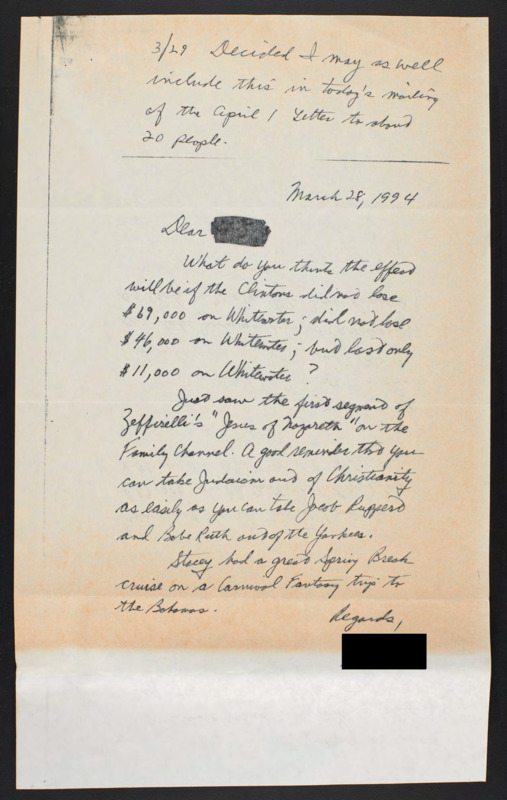 3/29 Decided I may as well
include this in today's mailing
of the April 1 Letter to about
20 people.
March 28, 1994
Dear
What do you think the effect
will be if the Clintons did not lose
$69,000 on Whitewater; did not lose
$46,000 on Whitewater; but lost only
$11,000 on Whitewater?
Just saw the first segment of
Zeffirelli's "Jesus of Nazareth" on the
Family Channel. A good reminder that you
can take Judaism out of Christianity
as easily as you can take Jacob Ruppert
and Babe Ruth out of the Yankees.
Stacey had a great Spring Break
cruise on a Carnival Fantasy trip to
the Bahamas.
Regards,